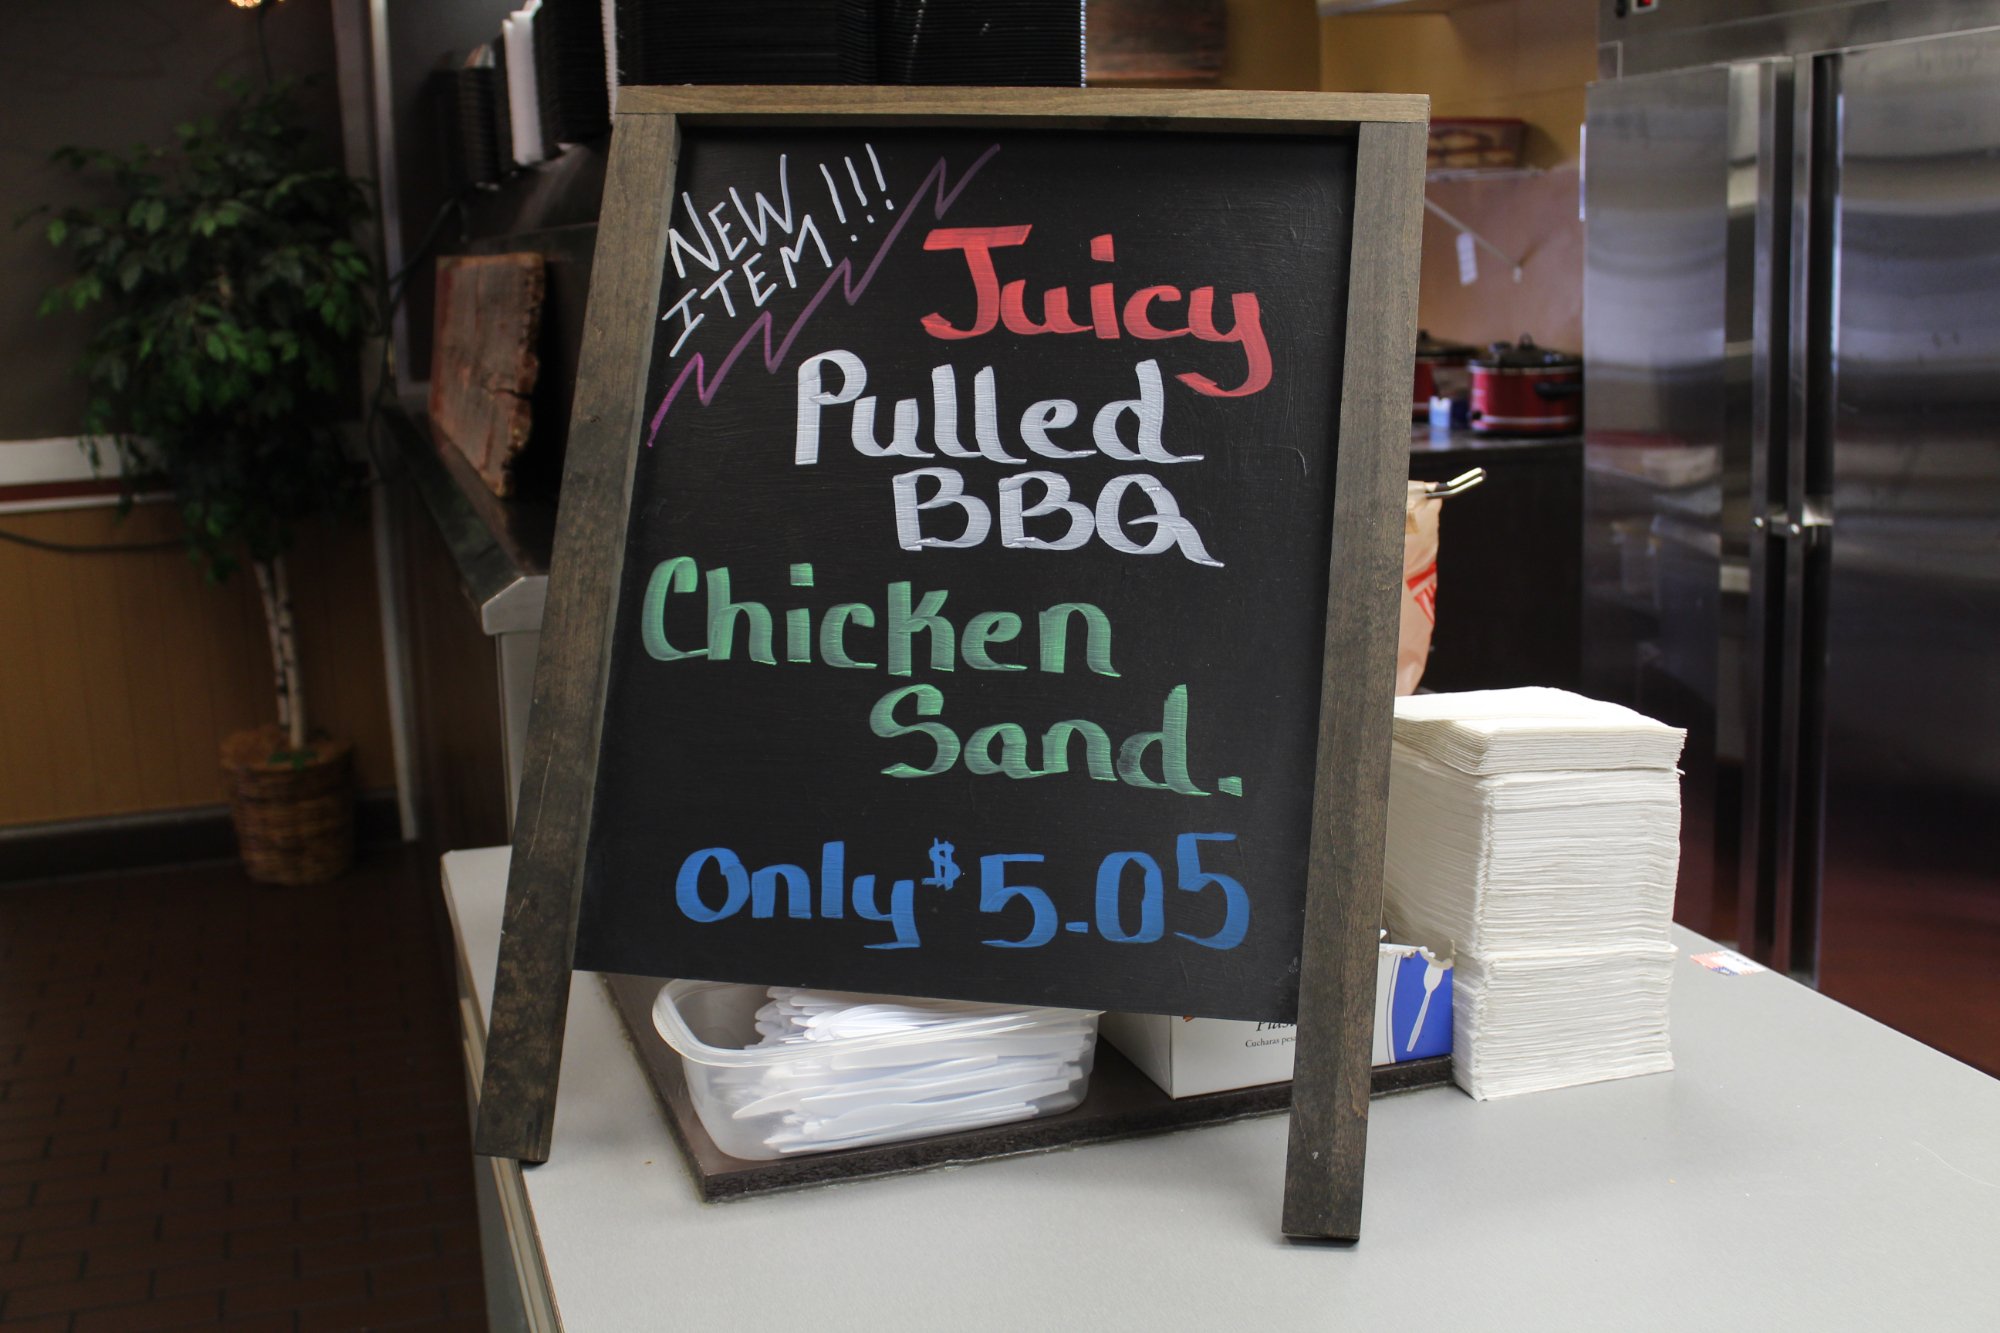 NEW
ITEM!!!
Juicy
Pulled
BBQ
Chicken
Sand.
Only $5.05
Cucharas